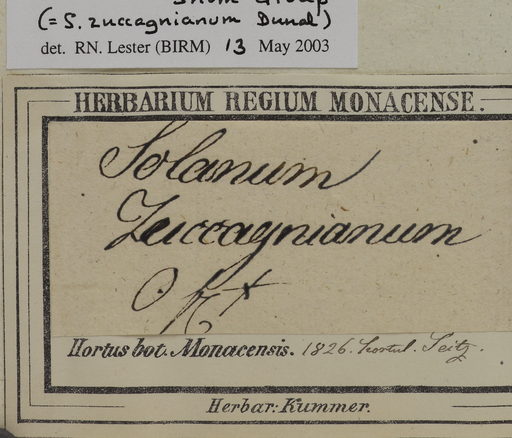 Group
(= S. zuccagnianum Dunal)
det. RN. Lester (BIRM) 13 May 2003
HERBARIUM REGIUM MONACENSE.
Solanum
Zuccagnianum
Hortus bot. Monacensis. 1826. hortul. Seitz.
Herbar: Kummer.